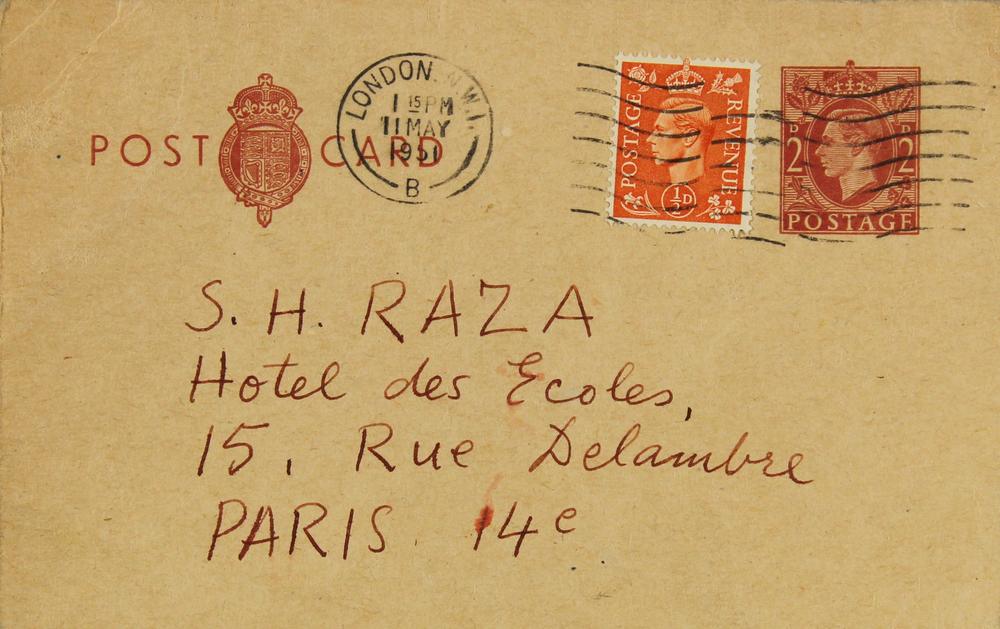 POST CARD
LONDON. N.W.1.
1 15 PM
11 MAY
1951
B
POSTAGE
REVENUE
½D
D D
2 2
POSTAGE
S. H. RAZA
Hotel des Ecoles,
15, Rue Delambre
PARIS 14e